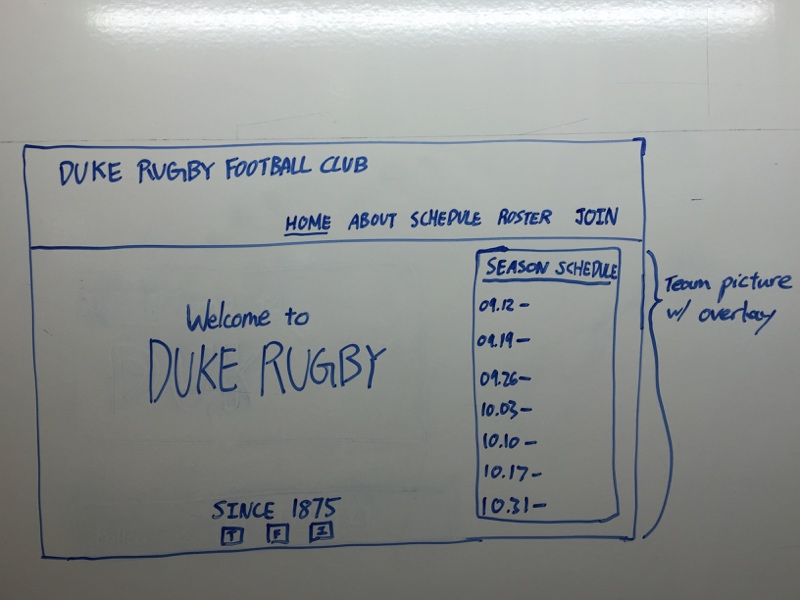 DUKE RUGBY FOOTBALL CLUB
HOME ABOUT SCHEDULE ROSTER JOIN
Welcome to
DUKE RUGBY
SINCE 1875
T F I
SEASON SCHEDULE
09.12 -
09.19 -
09.26 -
10.03 -
10.10 -
10.17 -
10.31 -
Team picture
w/ overlay